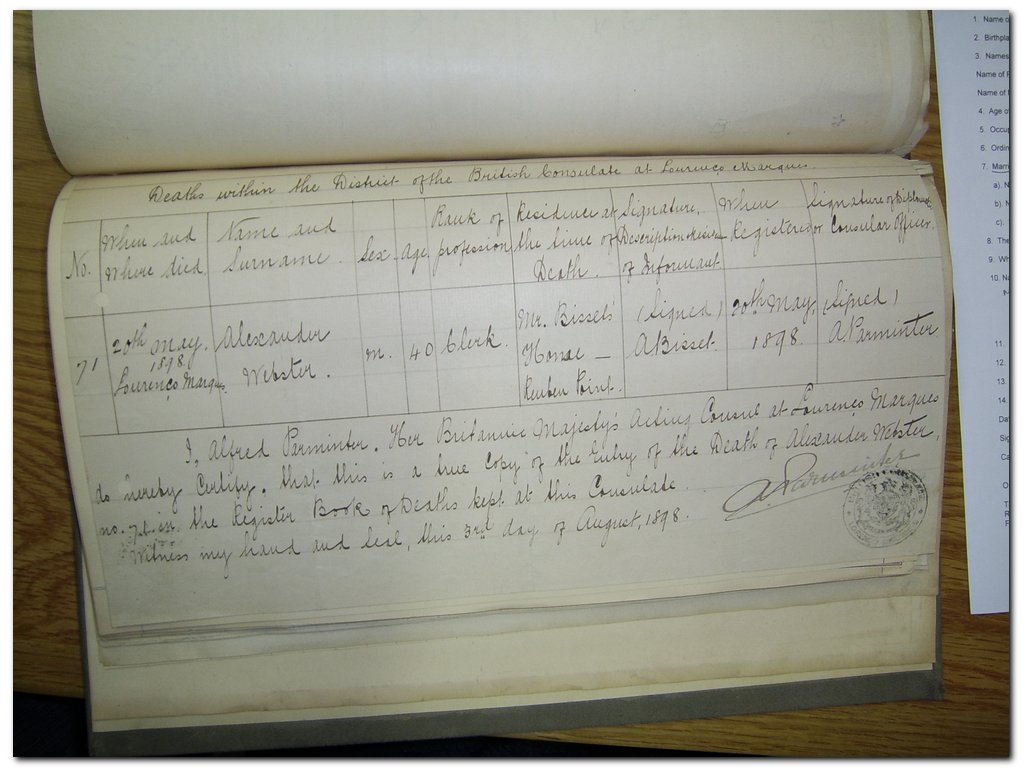 Deaths within the District of the British Consulate at Lourenço Marques.
No. When and Where died. Name and Surname. Sex. Age. Rank of profession Residence at the time of Death. Signature, Description & Residence of Informant. When Registered Signature of Diplomatic or Consular Officer.
71 20th May, 1898. Lourenço Marques. Alexander Webster. M. 40 Clerk. Mr. Bisset's House — Reuben Point. (Signed) A Bisset. 20th May, 1898. (Signed) A Parminter
I, Alfred Parminter. Her Britannic Majesty's Acting Consul at Lourenço Marques
do hereby Certify, that this is a true Copy of the Entry of the Death of Alexander Webster,
no. 71. in the Register Book of Deaths kept at this Consulate.
Witness my hand and Seal, this 3rd day of August, 1898.
A Parminter
1. Name o
2. Birthpla
3. Names
Name of F
Name of
4. Age o
5. Occu
6. Ordin
7. Marri
a). N
b). N
c).
8. The
9. Wh
10. Na
11.
12.
13.
14.
Da
Sig
Ca